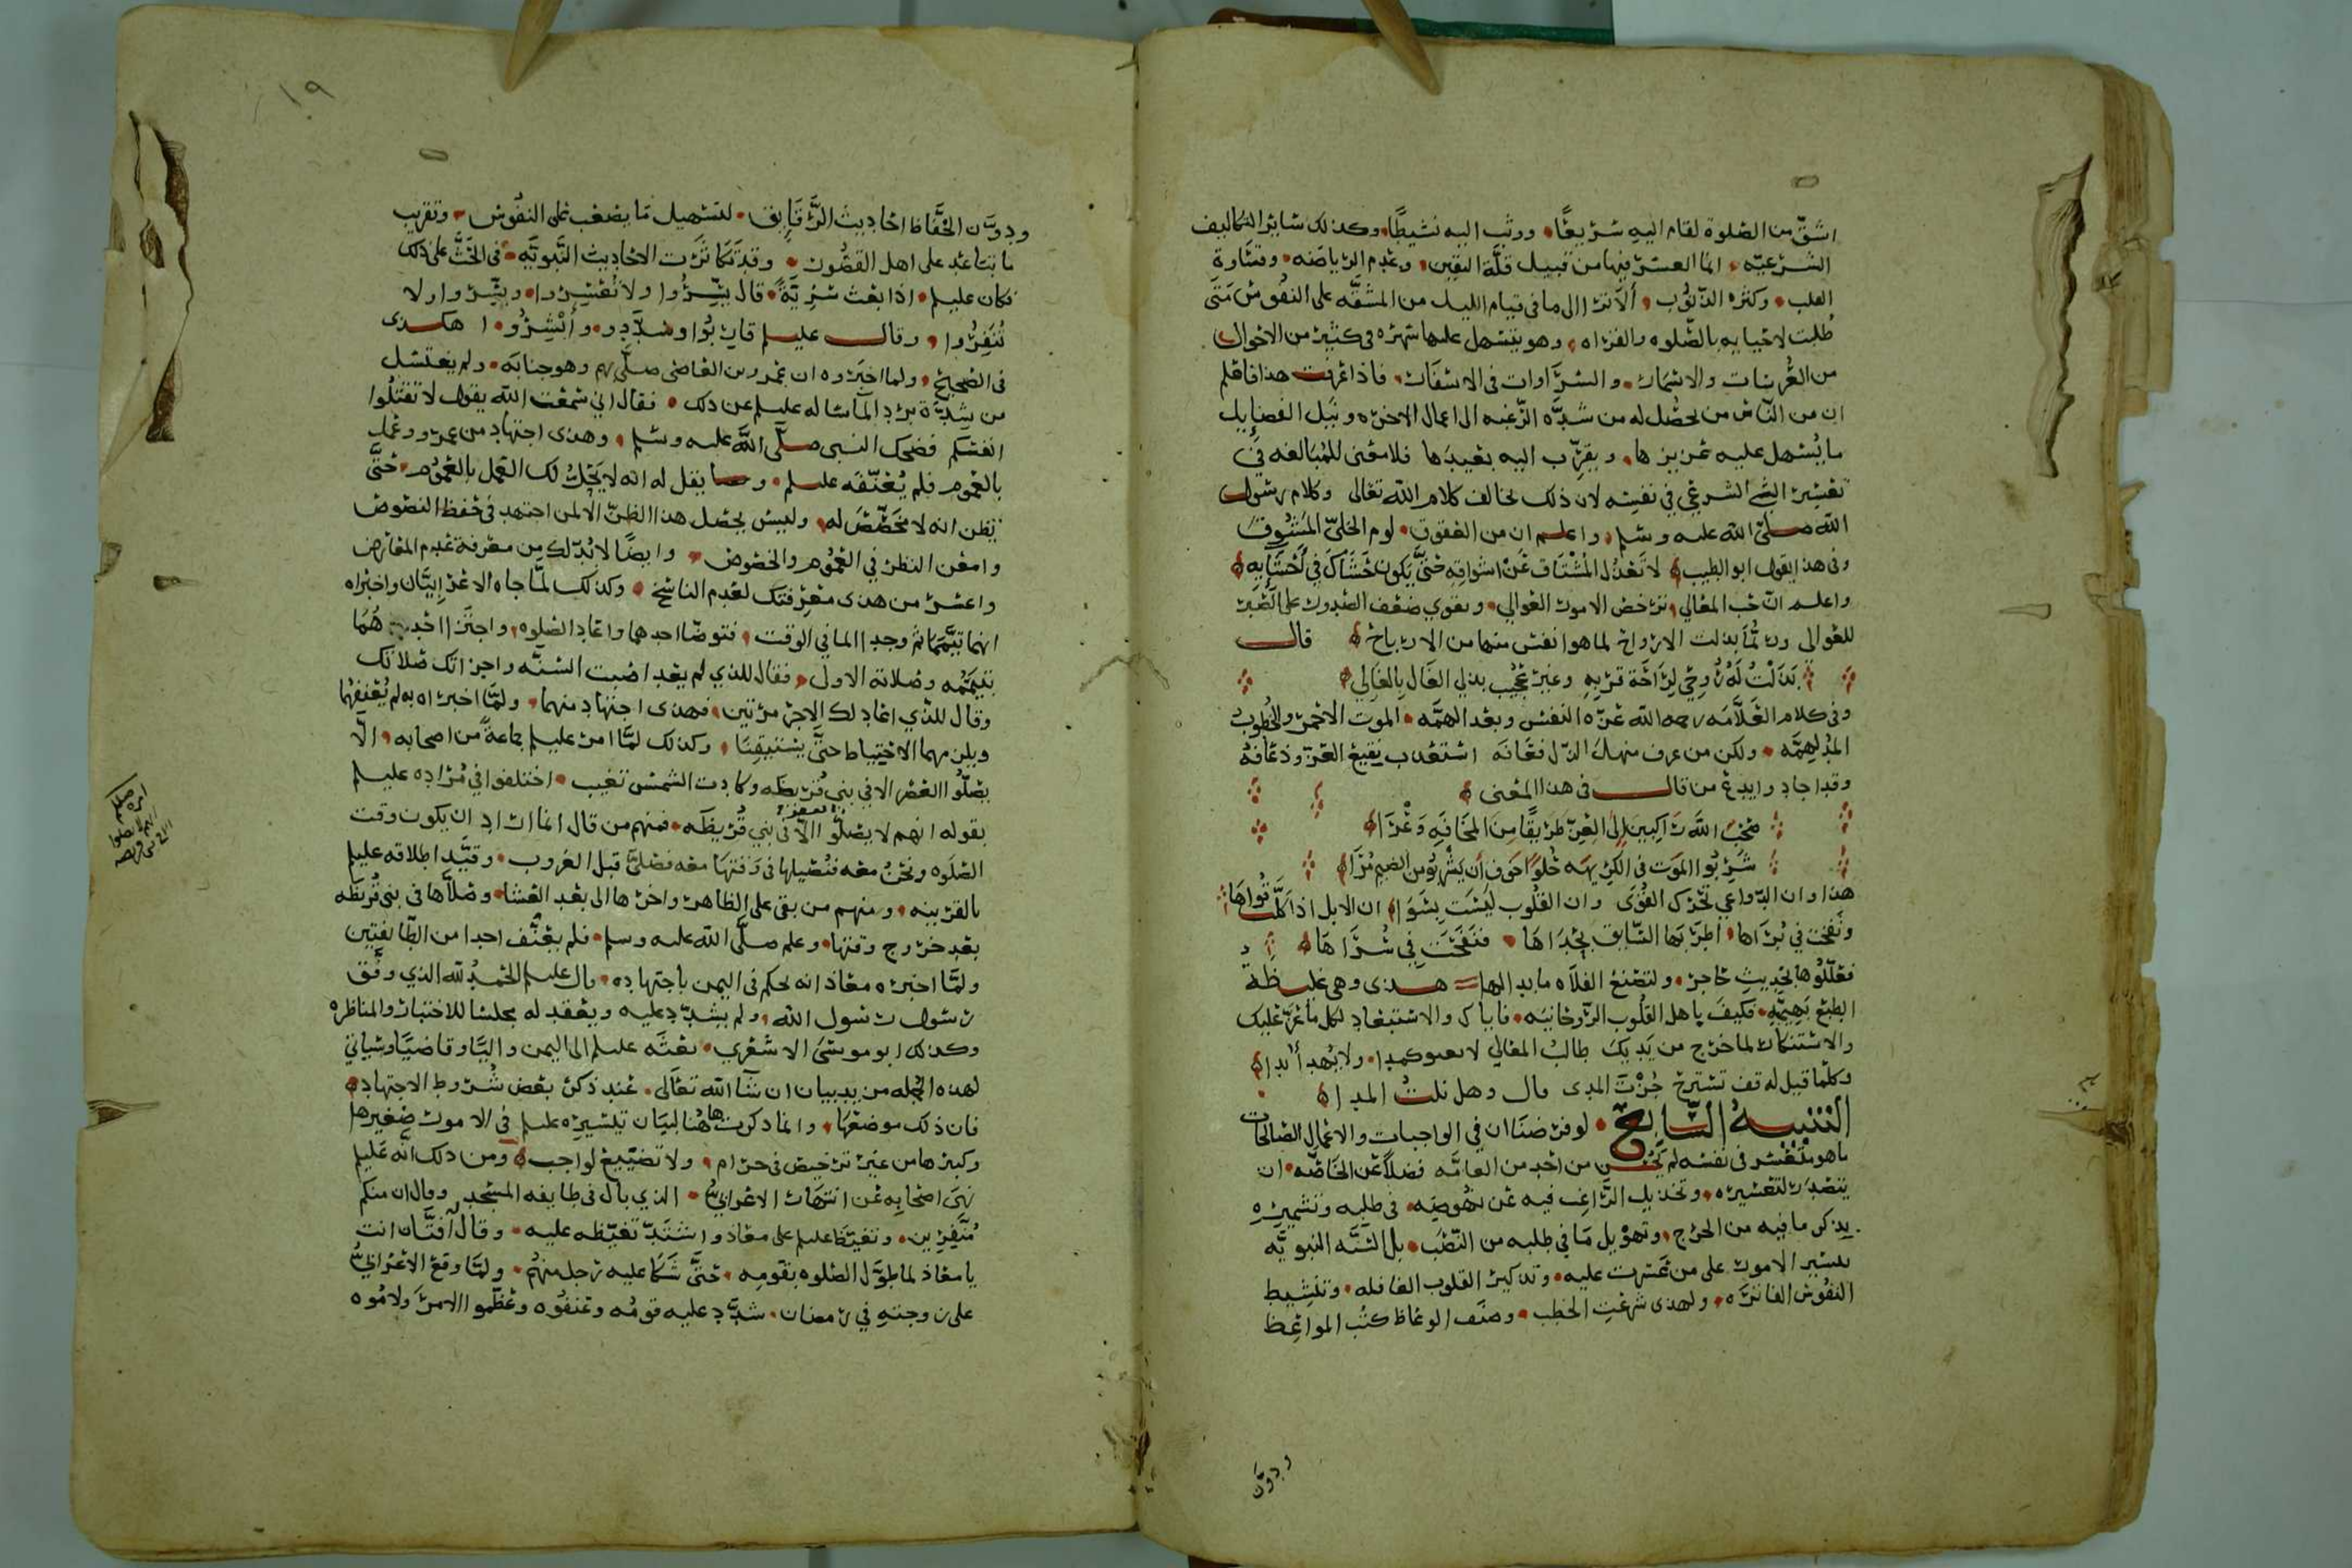 اشقّ من الصلوة لقام اليه سريعًا، ووثب اليه نشيطًا، وكذلك سائر التكاليف
الشرعيّه، انما العسر فيها من قبيل قلّة اليقين، وعدم الرياضه، وقساوة
القلب، وكثره الذنوب، ألا ترا الى ما في قيام الليل من المشقّه على النفوس متى
طُلبت لاحيايه بالصّلوه والقراه، وهو يتسهل عليها سهره في كثير من الاحوال
من العُرسات والاسمار، والسرَّاوات في الاسفار، فاذا عرفت هذا فاعلم
ان من النّاس من يحصُل له من شدّه الرّغبه الى اعمال الاخره ونيل الفضايل
ما يُسهل عليه عزيزها، ويقرّب اليه بعيدها فلا معنى للمبالغه في
تعسير الشي الشرعي في نفسه لان ذلك يخالف كلام الله تعالى وكلام رسول
الله صلى الله عليه وسلم، واعلم ان من العقوق، لوم الخليّ المشوق
وفي هذا يقول ابو الطيب لا تعذُل المُشتاق عَنْ اشواقه حتَّى يكون حَشَاكَ في أحشَايِهِ
واعلم انّ حُب المعالي، ترخص الامور الغوالي، ويقوي ضعف الصدور على الصّبر
للعوالي وربَّما بذلت الارواح لما هو انفس منها من الارباح قال
بَذَلْتُ لَهُ رُوحِي لِرَاحَة قربه وغير عجيب بذلي الغَال بالغَالي
وفي كلام العَلَّامَه رحمه الله عزّه النفس وبعد الهمَّه، الموت الاحمر والخُطوب
المُدْلهمَّه، ولكن من عرف منهل الذّل فعَافَه استعذب نقيع العزّ وذعَافه
وقد اجاد وابدع من قال في هذا المعنى
صَحِبَ اللّه رَاكِبينَ إلى العِزّ طريقًا مِنَ المخَافَه وَعْرَا
شَرِبُوا الموَت في الكريهَه حُلوًا خَوفَ أن يَشْرَبُو من الضيم مُرَّا
هذا وان الدّواعي تحرّك القُوَى وان القلُوب ليَسَت بِسَوَا، ان الابل اذا كلَّت قُواهَا
ونفخت في بُرَاها، اطرَبَها السَّايق بحُدَاهَا، فنَفَحَت في سُرَاهَا
فعَلّلُوها بحديث حاجر، ولتصنع الفلَاه ما بدا لها هذى وهي غليظة
الطبع بَهِيمَه، فكيفَ باهل القلُوب الرّوحانيه، فاياك والاستبعاد لكل ما عَزّ عليك
والاستنكار لما خرج من يَديك طالبُ المعَالي لا كمدا، ولا يُهد أبدا
وكلّما قيل له قف تسترح جُزْتَ المدى قال وهل نلتُ المدا
التنبيه السَّابع، لو فرضنَا ان في الواجبات والاعمال الصالحات
ما هو متعسر في نفسه لم يحْسُن من احد من العامَّه فضلًا عن الخَاصَّه، ان
يتصدر لتعسيره، وتخذيل الرّاغب فيه عن نهوضِه، في طلبه وتشميره
بذكر ما فيه من الحرج، وتهويل مَا في طلبه من التّعَب، بل السُّنَّه النبويَّه
تيسير الامور على من تعسَرت عليه، وتذكير القلوب الغافله، وتنشيط
النفُوس الفاترَه، ولهذى شُرعَت الخطب، وصنَّف الوعّاظ كتُب المواعِظ
ودوَّن
١٩
ودوَّن الحُفَّاظ احَاديث الرَّقايق، لتسهيل مَا يصعب على النفُوس، وتقريب
ما يتباعَد على اهل القصُور، وقد تكَاثرَت الاحاديث النَّبويَّه، في الحَثّ على ذلك
فكان عليلم، اذا بعث سَرِيّةً، قال يَسِّرُوا ولا تُعَسِّرُوا، وبشِّروا ولا
تُنَفِّرُوا، وقال عليلم قاربُوا وسَدِّدو، وأبْشِرُو، ا هكذى
في الصّحيح، ولما اخبَروه ان عَمرو بن العَاصي صلَّى بهم وهو جنابَه، ولم يغتسل
من شِدَّة بَرْد المآ ساله عليلم عن ذلك، فقال اني سَمعت الله يقول لا تقتُلُوا
انفسَكم فضحك النبي صلّى اللّه عليه وسلم، وهذى اجتهاد من عمرو وعمل
بالعُموم فلم يُعَنّفَه عليلم، وما يقل له انه لا يَحِلّ لك العَمل بالعُموم، حتَّى
يَظن انه لا مُخصّصَ له، وليس يحصل هذا الظنّ الا لمن اجتهد في حفظ النصُوص
وامعَن النظر في العُمُوم والخصُوص، وايضًا لا بُدّ لك من معرفة عَدم المعَارض
واعسر من هذى معْرفتك لعَدم الناسخ، وكذلك لمَّا جاه الاعْرابيَّان واخبَراه
انهما تيَمَّمَا ثم وجدا الما في الوقت، فتوضّا احدهما واعَاد الصّلوه، واجتزا احدهُمَا
بتيَممُه وصَلاته الاولى، فقال للذي لم يعِد اصَبت السُّنَّه واجزاتك صَلاتك
وقال للذي اعَاد لك الاجر مرّتين، فهذى اجتهاد منهما، ولمَّا اخبراه به لم يُعنِّفهُما
ويلزمهما الاحتياط حتَّى يستيقنَا، وكذلك لمَّا امر عليلم جماعَةً من اصحابه، الَّا
يصَلُّوا العَصْر الا في بني قُرَيظَه وكادت الشمسُ تغيب، اختلفوا في مُرَادِه عليلم
بقوله انهم لا يصَلّوا العصر الَّا في بني قُرَيظَه، فمنهم من قال انما اراد ان يكون وقت
الصّلَوه ونحْنُ معَه فنُصَليها في وَقتهَا معَه فصَلى قبل الغروب، وقيَّد اطلاقه عليلم
بالقرينه، ومنهم من بقى على الظاهر واخرها الى بعْد العشا، وصَلَّاها في بني قُريظَه
بعد خروج وقتها، وعلم صلَّى اللّه عليه وسلم، فلم يعَنّف احدا من الطَّايفتين
ولمَّا اخبره معَاذ انه يحكم في اليمن باجتهاده، قال عليلم الحَمدُ لله الذي وفّق
رسُول رسُول الله، ولم يشدّد عليه ويعْقد له مجلسًا للاختبار والمناظره
وكذلك ابو موسَى الاشعَري، بعَثَه عليلم الى اليمن واليًا وقاضيًا وسَياتي
لهذه الجمله مزيد بيان ان شَا اللّه تعَالى، عند ذكر بعْض شُروط الاجتهاد
فان ذلك موضعُهَا، وانما ذكرتها هُنا لبيَان تيَسيره عليلم في الامور صغيرها
وكبيرها من غير ترخيص في حرَام، ولا تضيّيع لواجب، ومن ذلك انّه عَليلم
نهَى اصحَابه عن انتهار الاعرَابي، الذي بال في طايفه المسْجد وقال ان منكم
مُنَفِّرين، وتغيَّظ عليلم على معَاذ واشتَدّ تغيّظه عليه، وقال أفتَّان انت
يا معَاذ لما طوَّل الصّلوه بقومه، حَتَّى شَكَا عليه رَجل منهُم، ولمَّا وقَع الاعْرَابيُّ
على زوجته في رمضان، شدَّد عليه قومُه وعَنفُوه وعَظّموا الامرَ ولامُوه